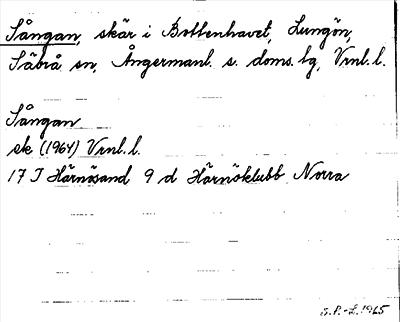 Sångan, skär i Bottenhavet, Lungön,
Säbrå sn, Ångermanl. s. doms. lg, Vrnl. l.
Sångan
sk (1964) Vrnl. l.
17 I Härnösand 9 d Härnöklubb Norra
S. P.-L. 1965